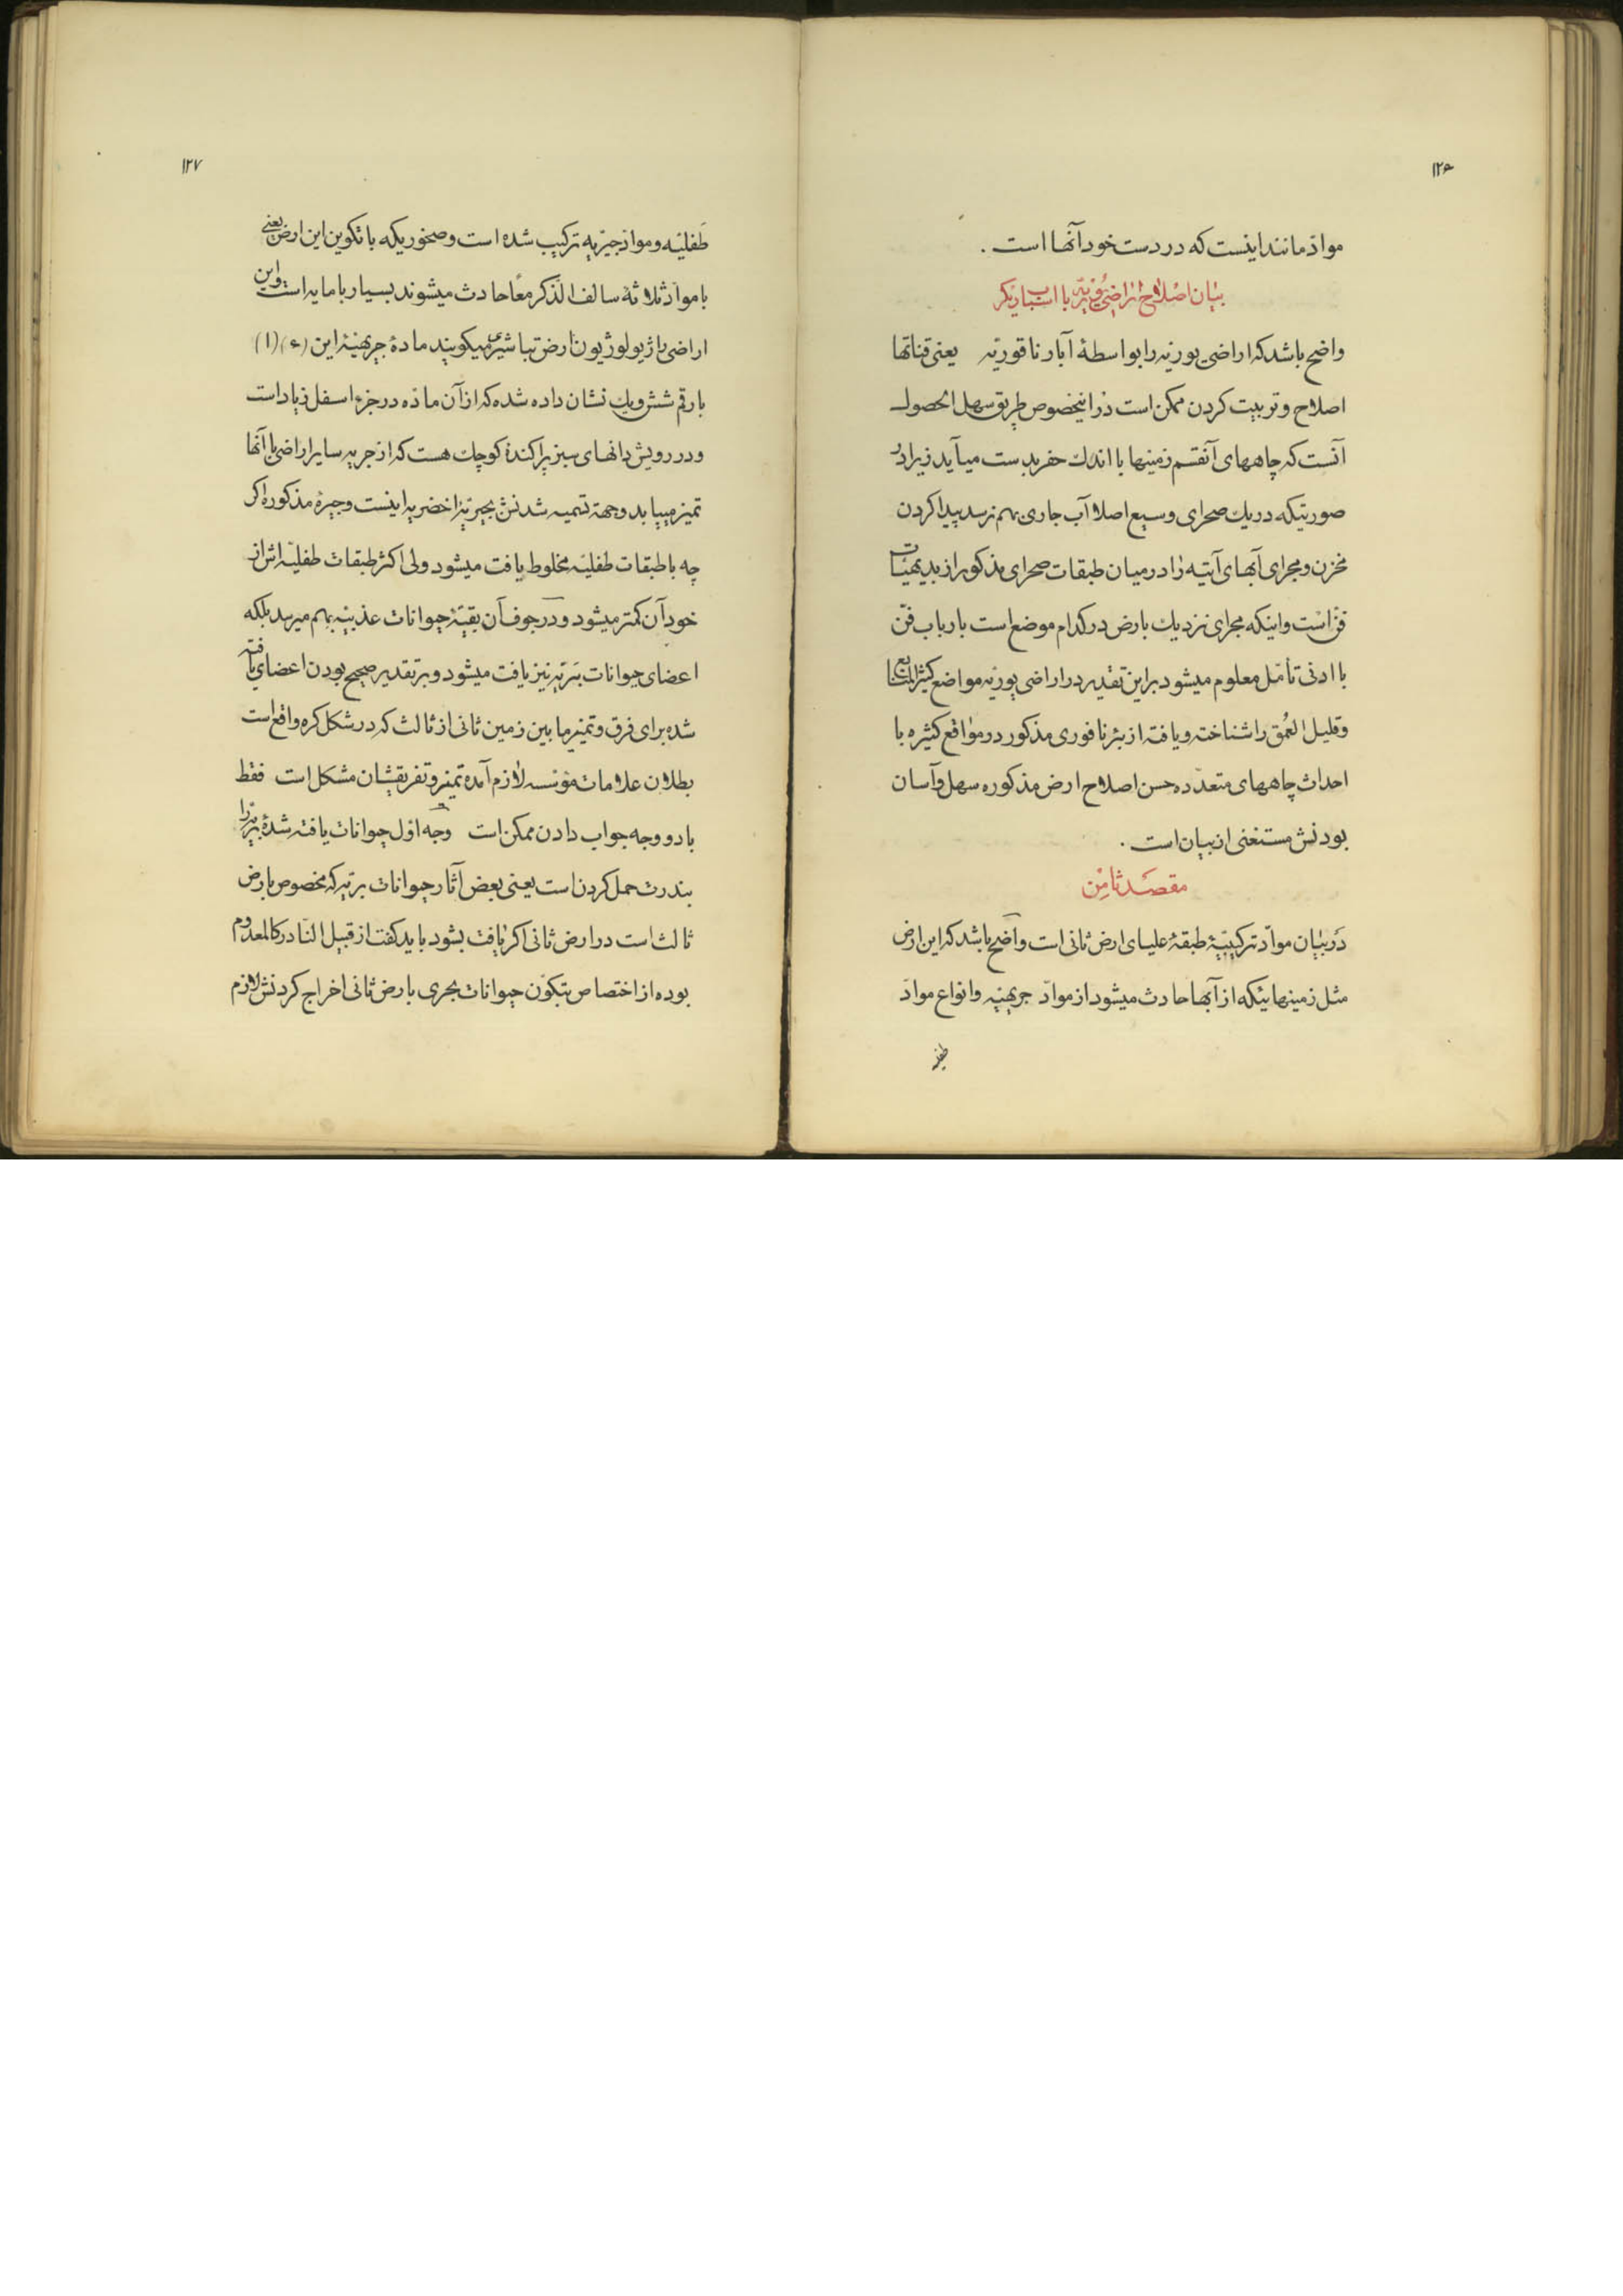 ۱۲۶
مواد مانند اینست که در دست خود آنها است .
بیان اصلاح اراضی بورنیه با اسباب دیگر
واضح باشد که اراضی بورنیه را بواسطهٔ آبار ناقوریه یعنی قناتها
اصلاح و تربیت کردن ممکن است در اینخصوص طریق سهل الحصول
آنست که چاههای آنقسم زمینها با اندك حفر بدست میآید زیرا در
صورتیکه در یك صحرای وسیع اصلا آب جاری بهم نرسد پیدا کردن
مخزن و مجرای آبهای آتیه را در میان طبقات صحرای مذکور از بدیهیات
فن است و اینکه مجرای نزدیك بارض در کدام موضع است بارباب فن
با ادنی تأمل معلوم میشود براین تقدیر در اراضی بورنیه مواضع کثیر المنابع
وقلیل العمق را شناخته و یافته از بئر نافوری مذکور در مواقع کثیره با
احداث چاههای متعدده حسن اصلاح ارض مذکوره سهل و آسان
بودنش مستغنی از بیان است .
مقصد ثامن
در بیان مواد ترکیبیهٔ طبقهٔ علیای ارض ثانی است واضح باشد که این ارض
مثل زمینهائیکه از آبها حادث میشود از مواد جریهنیه و انواع مواد
طفلیه
۱۲۷
طفلیه و مواد جیریه ترکیب شده است و صخوریکه با تکوین این ارض یعنی
با مواد ثلاثهٔ سالف الذکر معا حادث میشوند بسیار با مایه است و این
اراضی را ژیولوژیون ارض تباشیری میگویند مادهٔ جریهنیهٔ این (۶) (۱)
بارقم شش و یك نشان داده شده که از آن ماده در جزء اسفل زیاد است
و در رویش دانهای سبز پراکندهٔ کوچك هست که از جریه سایر اراضی با آنها
تمیز مییابد و جهة تسمیه شدنش بجیریهٔ اخضریه اینست و جیرهٔ مذکوره اگر
چه با طبقات طفلیه مخلوط یافت میشود ولی اکثر طبقات طفلیه اش از
خود آن کمتر میشود و در جوف آن بقیهٔ حیوانات عذبیه بهم میرسد بلکه
اعضای حیوانات بریه نیز یافت میشود و بر تقدیر صحیح بودن اعضای یافته
شده برای فرق و تمیز مابین زمین ثانی از ثالث که در شکل کره واقع است
بطلان علامات مؤسسه لازم آمده تمیز و تفریقشان مشکل است فقط
با دو وجه جواب دادن ممکن است وجه اول حیوانات یافته شدهٔ بریه را
بندرت حمل کردن است یعنی بعض آثار حیوانات بریه که مخصوص بارض
ثالث است در ارض ثانی اگر یافت بشود باید گفت از قبیل النادر کالمعدوم
بوده از اختصاص بتکون حیوانات بحری بارض ثانی اخراج کردنش لازم